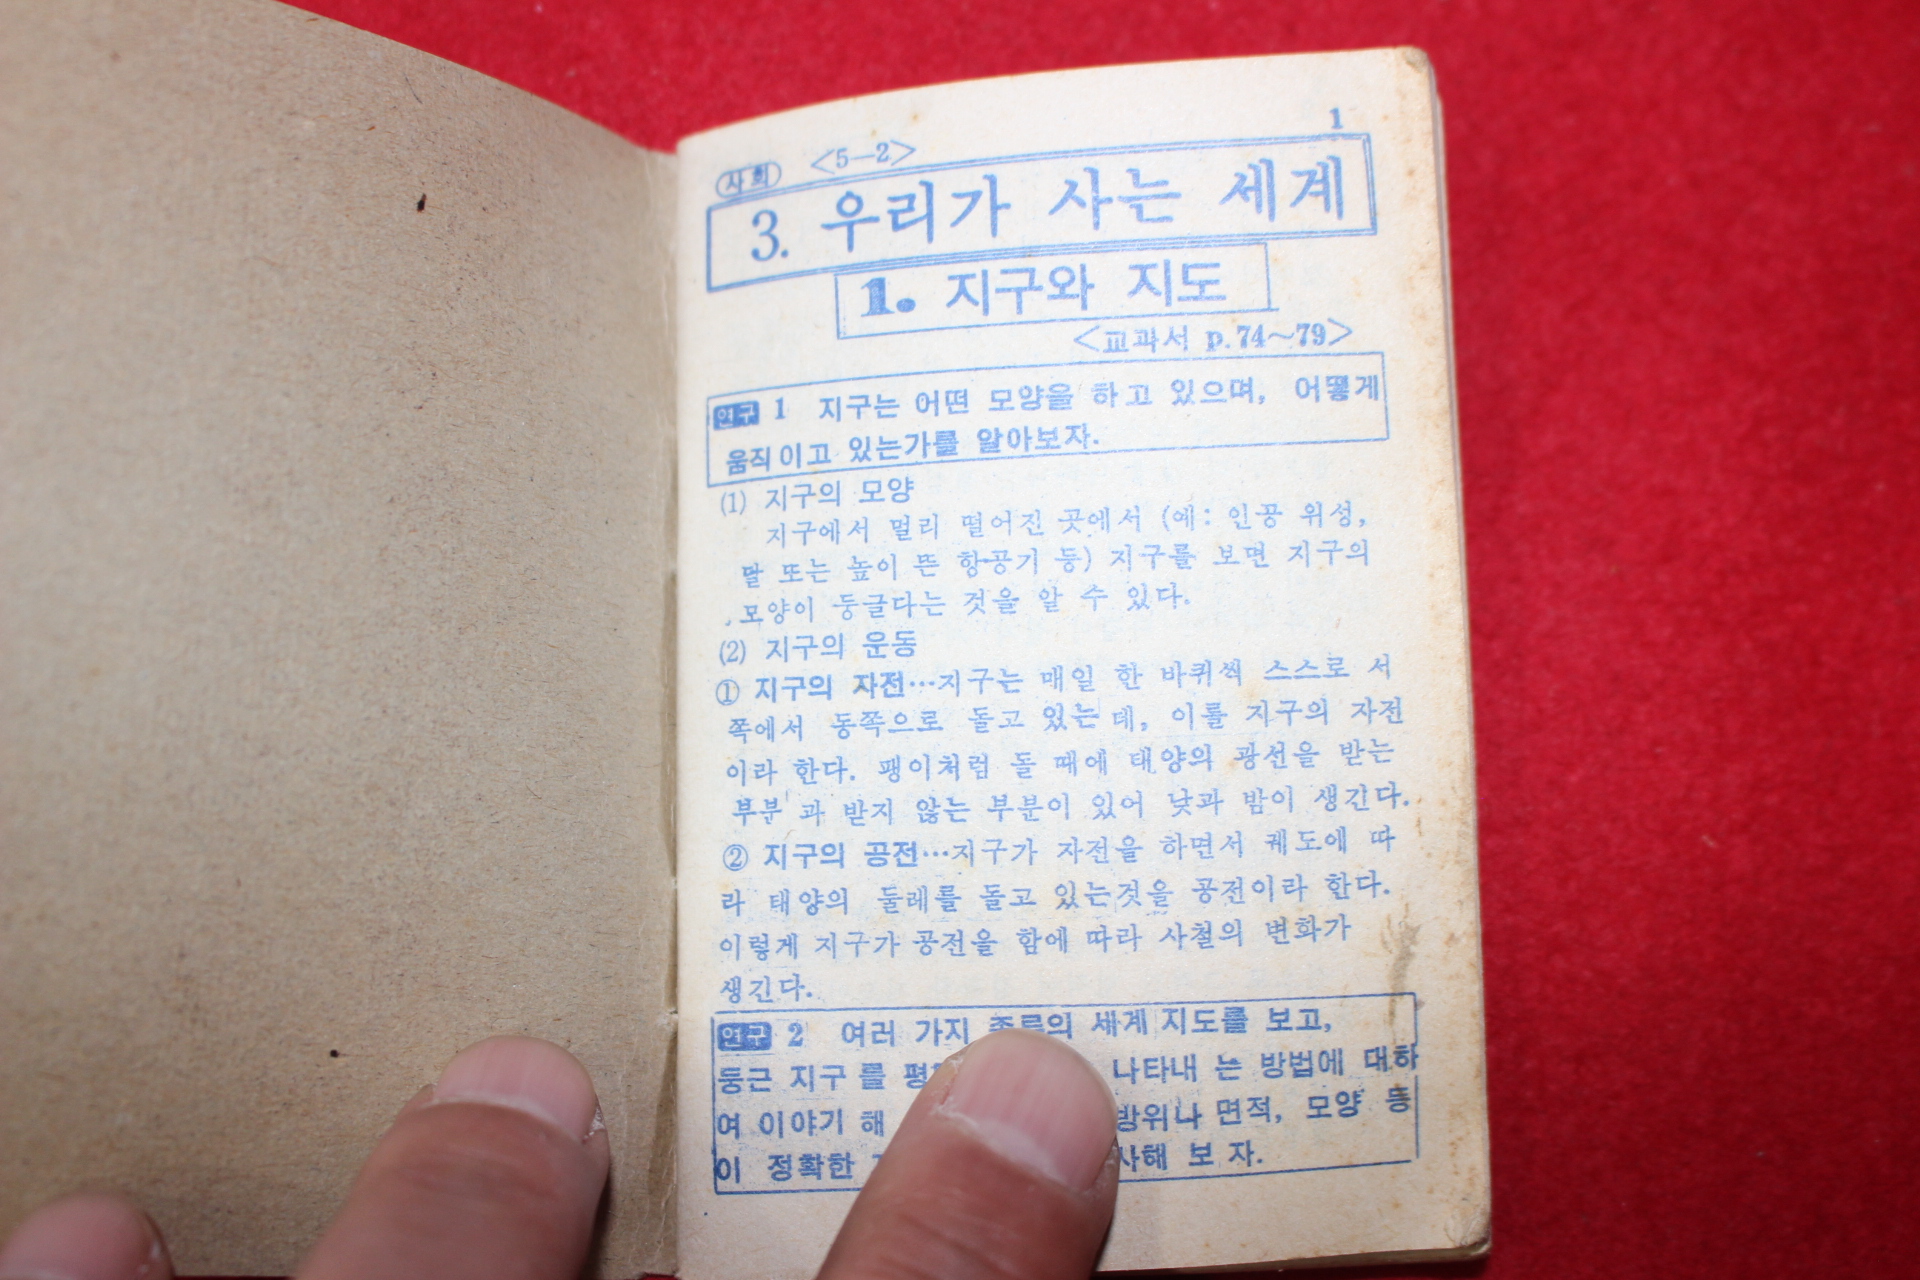 1
사회 <5-2>
3. 우리가 사는 세계
1. 지구와 지도
<교과서 p.74~79>
연구 1 지구는 어떤 모양을 하고 있으며, 어떻게
움직이고 있는가를 알아보자.
(1) 지구의 모양
지구에서 멀리 떨어진 곳에서 (예: 인공 위성,
달 또는 높이 뜬 항공기 등) 지구를 보면 지구의
모양이 둥글다는 것을 알 수 있다.
(2) 지구의 운동
① 지구의 자전…지구는 매일 한 바퀴씩 스스로 서
쪽에서 동쪽으로 돌고 있는데, 이를 지구의 자전
이라 한다. 팽이처럼 돌 때에 태양의 광선을 받는
부분과 받지 않는 부분이 있어 낮과 밤이 생긴다.
② 지구의 공전…지구가 자전을 하면서 궤도에 따
라 태양의 둘레를 돌고 있는것을 공전이라 한다.
이렇게 지구가 공전을 함에 따라 사철의 변화가
생긴다.
연구 2 여러 가지 종류의 세계 지도를 보고,
둥근 지구를 나타내는 방법에 대하
여 이야기 해 방위나 면적, 모양 등
이 정확한 사해 보자.